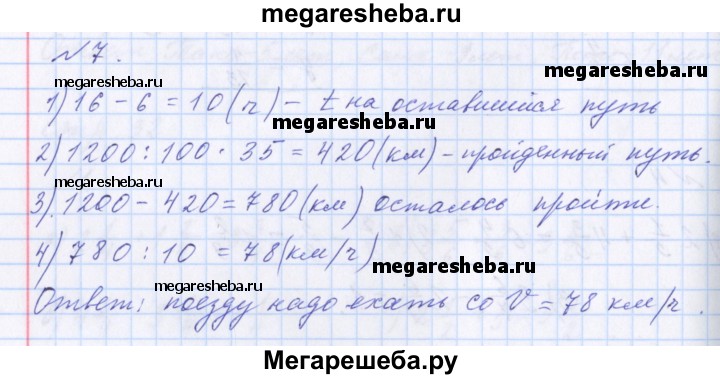 megaresheba.ru
№ 7.
megaresheba.ru
megaresheba.ru
1) 16 - 6 = 10 (ч) - t на оставшийся путь
megaresheba.ru
2) 1200 : 100 · 35 = 420 (км) - пройденный путь.
megaresheba.ru
3) 1200 - 420 = 780 (км) осталось пройти.
4) 780 : 10 = 78 (км/ч)
megaresheba.ru
megaresheba.ru
Ответ: поезду надо ехать со V = 78 км/ч.
Мегарешеба.ру